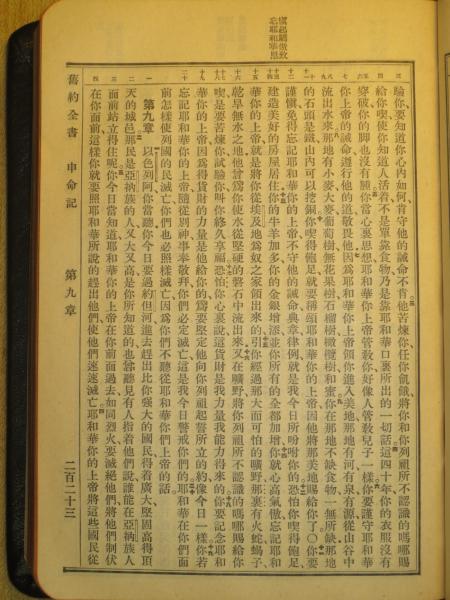 忘耶和華恩
驗你、要知道你心內如何、肯守他的誡命不肯、他苦煉你、任你飢餓、將你和你列祖所不認識的嗎哪賜
給你喫、使你知道人活着不是單靠食物、乃是靠耶和華口裏所出的一切話、這四十年、你的衣服沒有
穿破、你的腳也沒有腫、你當心裏思想耶和華你上帝管教你、好像人管教兒子一樣、你要謹守耶和華
你上帝的誡命、遵行他的道、敬畏他、因爲耶和華你上帝領你進入美地、那地有河、有泉、有源、從山谷中
流出水來、那地有小麥、大麥、葡萄樹、無花果樹、石榴樹、橄欖樹、和蜜、你在那地不缺食物、一無所缺、那地
的石頭是鐵、山內可以挖銅、你喫得飽足、就要稱頌耶和華你的上帝、因他將那美地賜給你了○你要
謹愼、免得忘記耶和華你的上帝、不守他的誡命、典章、律例、就是我今日所吩咐你的、恐怕你喫得飽足、
建造美好的房屋居住、你的牛羊加多、你的金銀增添、並你所有的全都加增、你就心高氣傲、忘記耶和
華你的上帝、就是將你從埃及地爲奴之家領出來的、引你經過那大而可怕的曠野、那裏有火蛇、蝎子、
乾旱無水之地、他曾爲你使水從堅硬的磐石中流出來、又在曠野、將你列祖所不認識的嗎哪賜給你
喫、是要苦煉你、試驗你、叫你終久享福、恐怕你心裏說、這貨財是我力量我能力得來的、你要記念耶和
華你的上帝、因爲得貨財的力量是他給你的、爲要堅定他向你列祖起誓所立的約、像今日一樣、你若
忘記耶和華你的上帝、隨從別神、事奉敬拜、你們必定滅亡、這是我今日警戒你們的、耶和華在你們面
前怎樣使列國的民滅亡、你們也必照樣滅亡、因爲你們不聽從耶和華你們上帝的話、
第九章 以色列阿、你當聽、你今日要過約但河、進去趕出比你強大的國民、得着廣大堅固高得頂
天的城邑、那民是亞衲族的人、又大又高、是你所知道的、也曾聽見有人指着他們說、誰能在亞衲族人
面前站立得住呢、你今日當知道、耶和華你的上帝在你前面過去、如同烈火、要滅絕他們、將他們制伏
在你面前、這樣、你就要照耶和華所說的、趕出他們、使他們速速滅亡、耶和華你的上帝將這些國民從
舊約全書 申命記 第九章 二百二十三